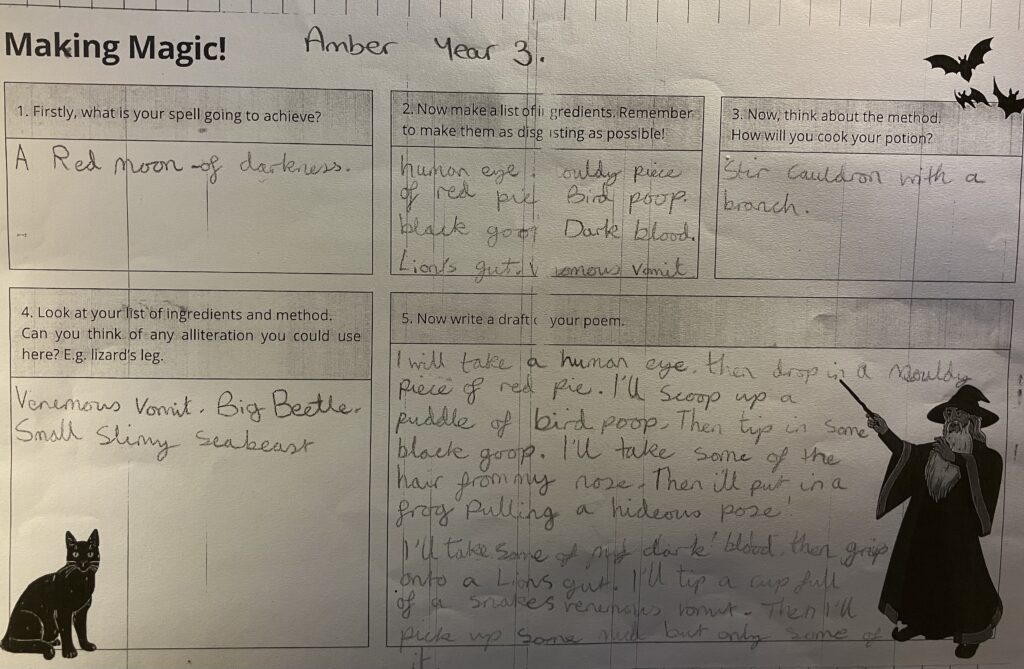 Making Magic! Amber Year 3.
1. Firstly, what is your spell going to achieve?
A Red moon of darkness.
2. Now make a list of ingredients. Remember
to make them as disgusting as possible!
human eye. ouldy piece
of red pie Bird poop.
black goop Dark blood.
Lion's gut. V nomous vomit
3. Now, think about the method.
How will you cook your potion?
Stir Cauldron with a
branch.
4. Look at your list of ingredients and method.
Can you think of any alliteration you could use
here? E.g. lizard's leg.
Venemous Vomit. Big Beetle.
Small Slimy Seabeast
5. Now write a draft of your poem.
I will take a human eye. then drop in a mouldy
piece of red pie. I'll scoop up a
puddle of bird poop. Then tip in some
black goop. I'll take some of the
hair from my nose. Then i'll put in a
frog Pulling a hideous pose!
I'll take some of my dark blood. then grip
onto a Lions gut. I'll tip a cup full
of a snakes venemous vomit. Then I'll
pick up some but only some of
it